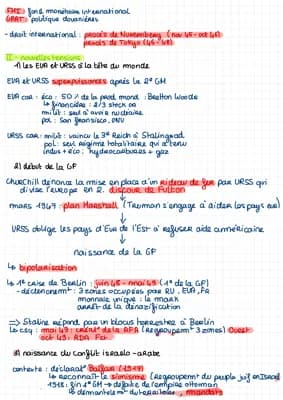 FMI : fond monétaire international
GATT : politique douanières
- droit international : procès de Nuremberg (nov 45 - oct 46)
procès de Tokyo (46 - 48)
II - nouvelles tensions
1) les EUA et URSS à la tête du monde
EUA et URSS superpuissances après la 2e GM
EUA car : éco : 50% de la prod mond : Bretton Woods
↳ financière : 2/3 stock or
milit : seul à avoir nucléaire
pol : San fransisco, ONU
URSS car : milit : vaincu le 3e Reich à Stalingrad
pol : seul régime totalitaire qui a tenu
indus + éco : hydrocarbures + gaz
2) début de la GF
Churchill dénonce la mise en place d'un rideau de fer par URSS qui
divise l'europe en 2. discours de Fulton
mars 1947 : plan Marshall (Truman s'engage à aider les pays eur)
URSS oblige les pays d'Eur de l'Est à refuser aide américaine
naissance de la GF
↳ bipolarisation
↳ 1e crise de Berlin : juin 48 - mai 49 (1e de la GF)
- déclenchemt : 3 zones occupées par RU, EUA, FR
monnaie unique : le mark
arrêt de la dénazification
⇒ Staline répond par un blocus terrestre à Berlin
↳ csq : mai 49 : création de la RFA (regroupemt 3 zones) Ouest
oct 49 : RDA Est
3) naissance du conflit israelo-arabe
contexte : déclarat° Balfour (1917)
↳ reconnaît le sionisme (Regroupemt du peuple juif en Israël)
1918 : fin 1e GM → défaite de l'empire ottoman
↳ démantèlemt du territoire, mandats